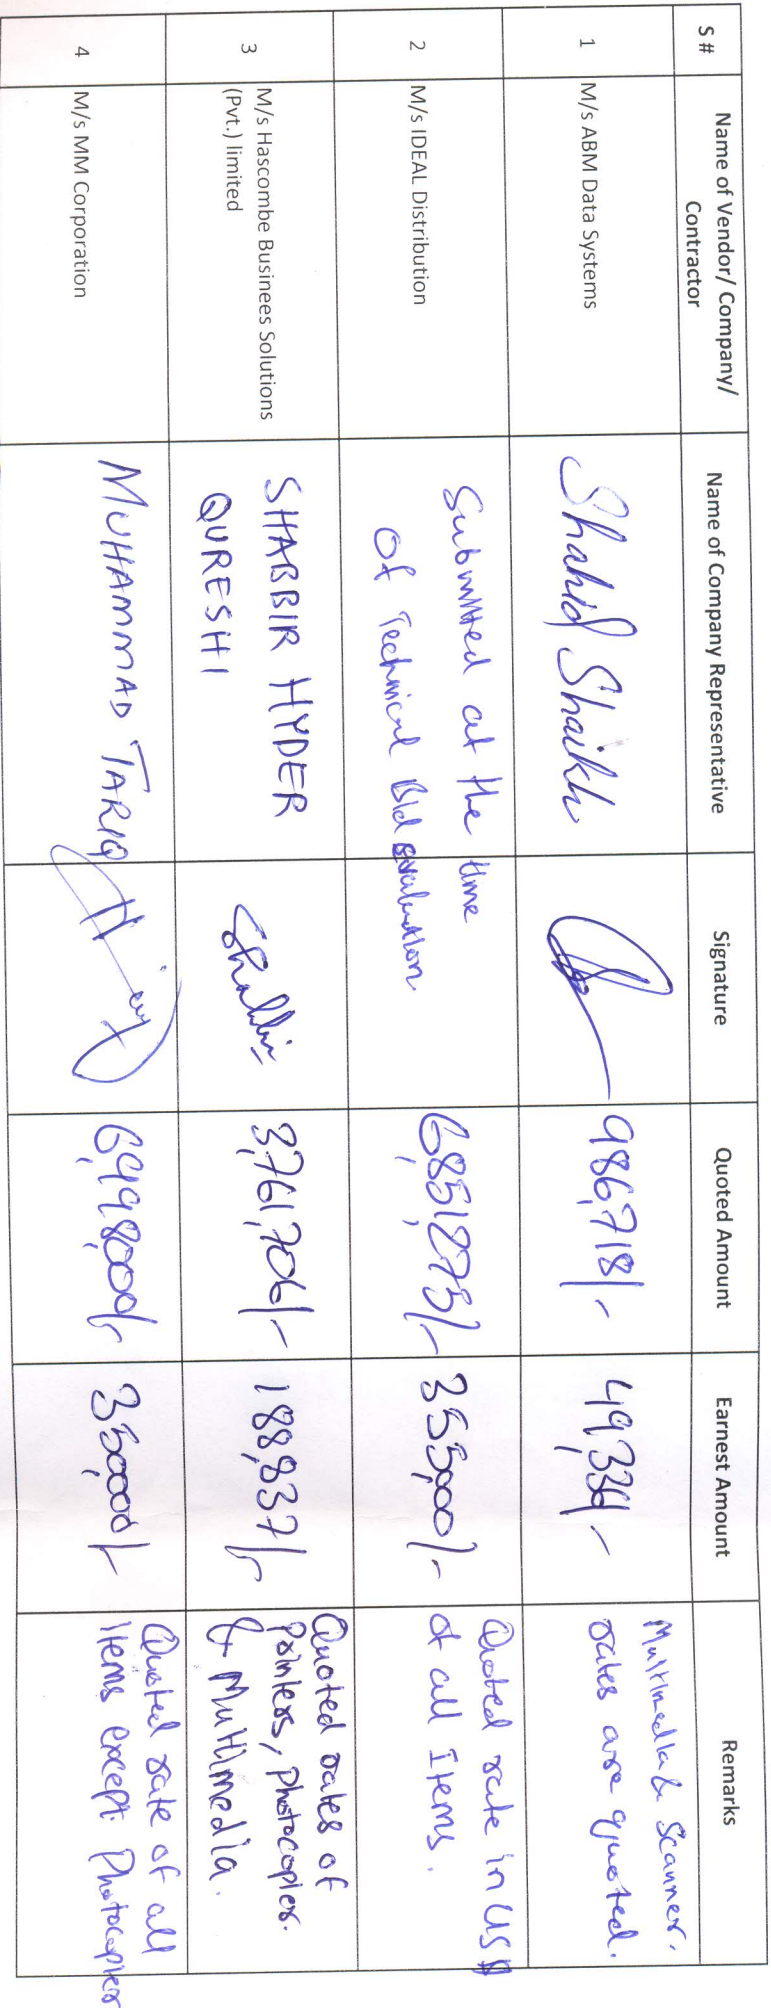 S #
Name of Vendor/ Company/
Contractor
Name of Company Representative
Signature
Quoted Amount
Earnest Amount
Remarks
1
M/s ABM Data Systems
Shahid Shaikh
986,718/-
49,334/-
Multimedia & Scanner.
rates are quoted.
2
M/s IDEAL Distribution
Submitted at the time
of Technical Bid evaluation
355,000/-
Quoted rate in US $
of all Items.
3
M/s Hascombe Businees Solutions
(Pvt.) limited
SHABBIR HYDER
QURESHI
3,761,706/-
188,837/-
Quoted rates of
Printers, Photocopier.
& Multimedia.
4
M/s MM Corporation
MUHAMMAD TARIQ
6,998,000/-
350,000/-
Quoted rate of all
Items except Photocopier